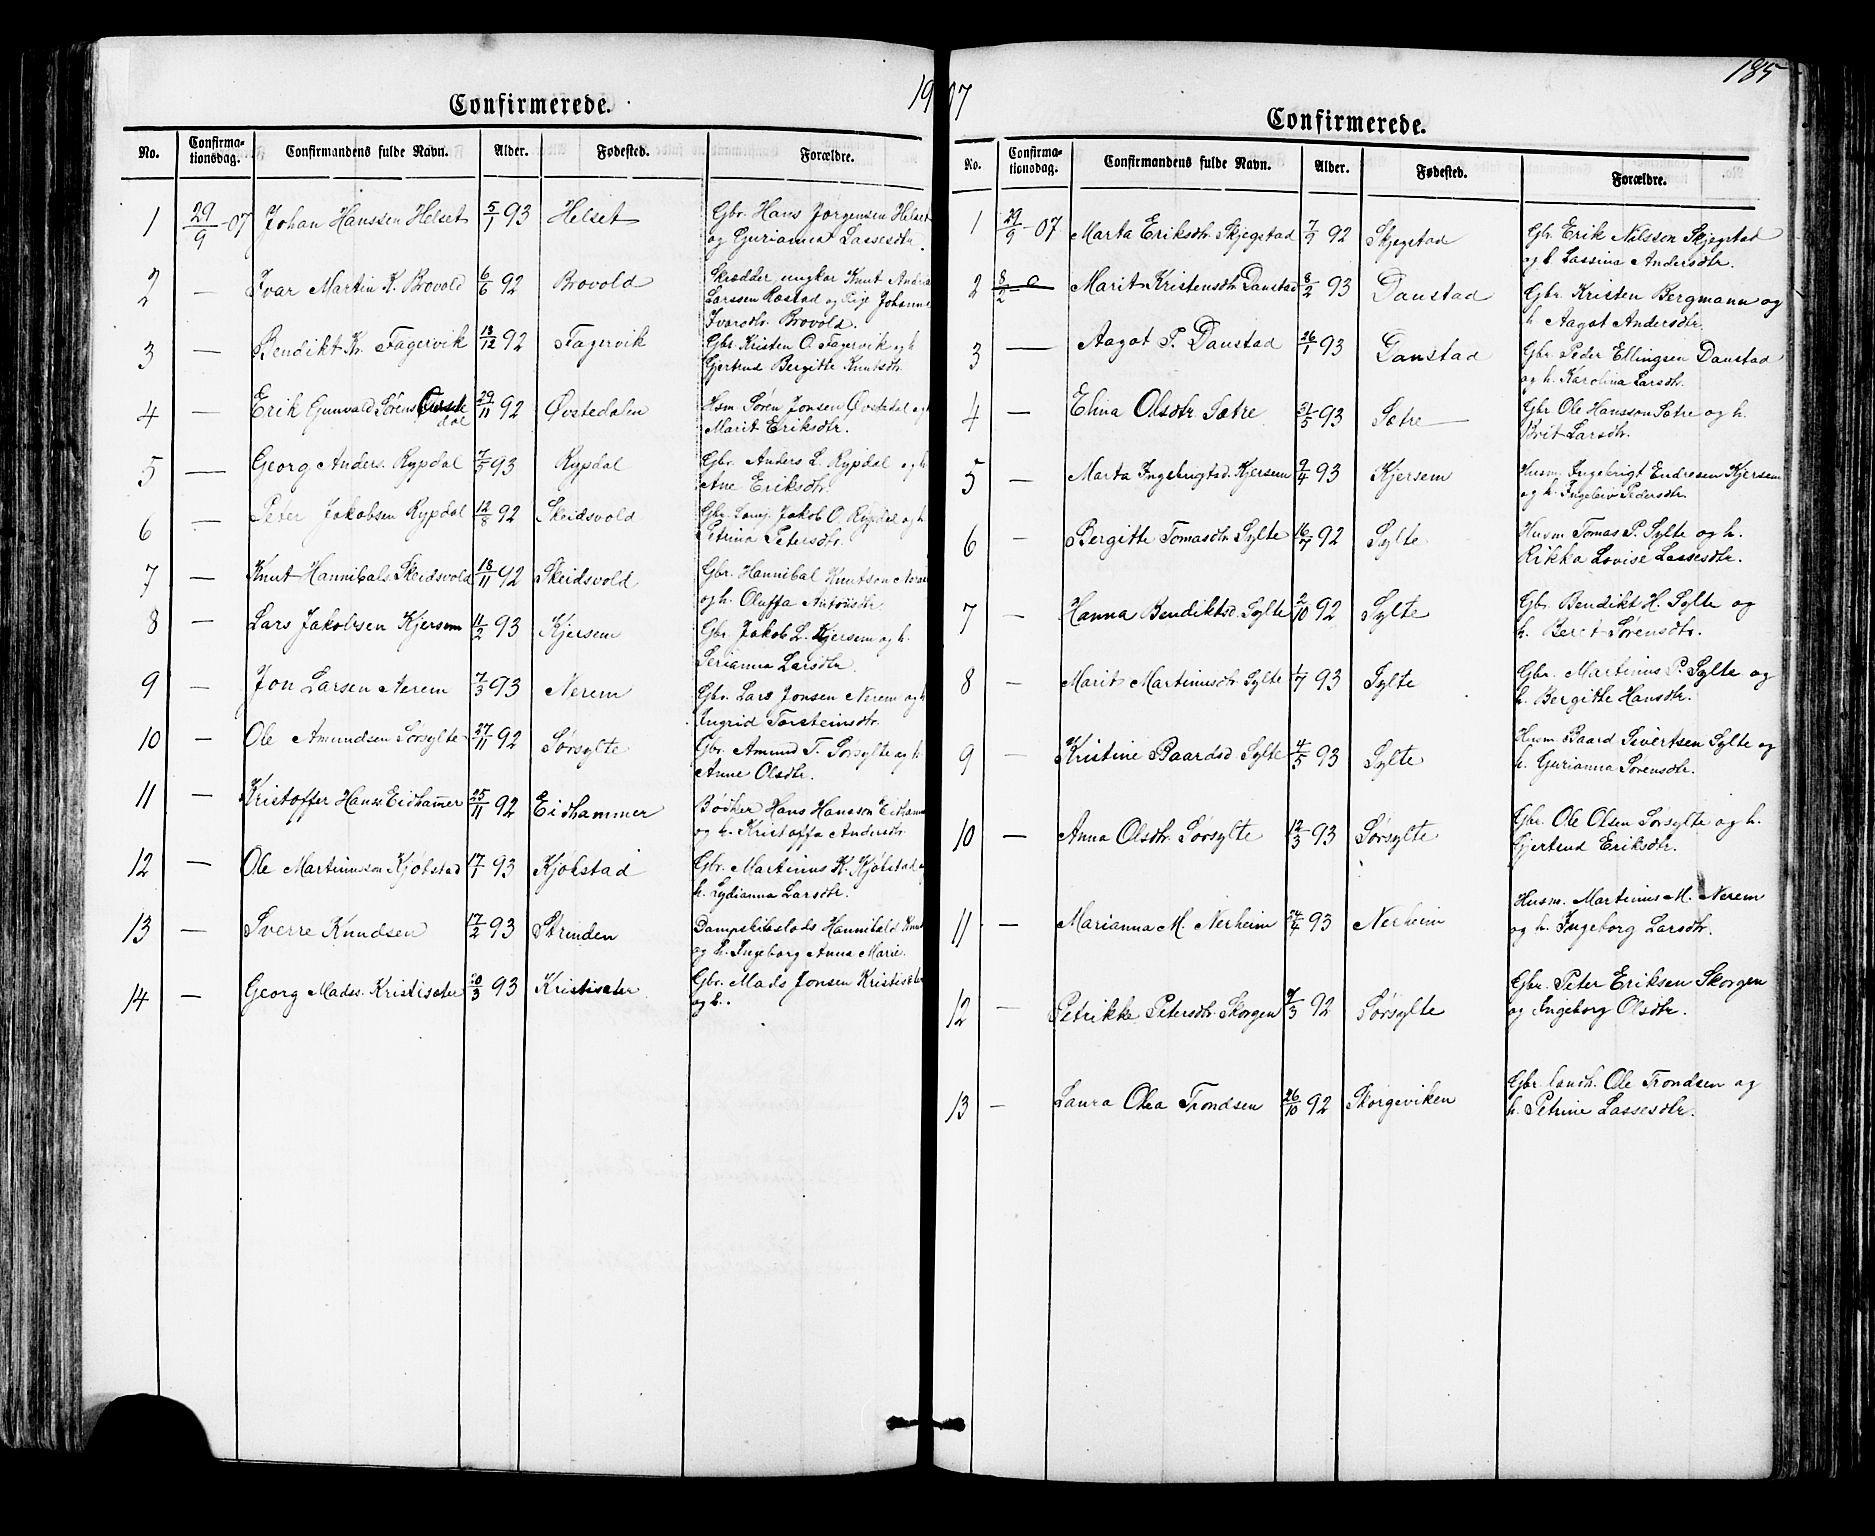 185
1907
Confirmerede.
No. Confirma- tionsdag. Confirmandens fulde Navn. Alder. Fødested. Forældre.
1 29/9-07 Johan Hanssen Helset 5/1 93 Helset Gbr. Hans Jørgensen Helset
og Gurianna Lassesdtr.
2 — Ivar Martin K. Brovold 6/6 92 Brovold Skrædder ungkar Knut Andrea
Larssen Røstad og Pige Johanne
Ivarsdtr. Brovold.
3 — Bendikt Kr. Fagervik 13/12 92 Fagervik Gbr. Kristen O. Fagervik og h.
Gjertrud Bergitte Knutsdtr.
4 — Erik Gunvald Sørens Øvste 29/11 92 Øvstedalen Hsm Søren Jonsen Øvstedal og
dal Marit Eriksdtr.
5 — Georg Anders. Rypdal 7/5 93 Rypdal Gbr. Anders L. Rypdal og h.
Ane Eriksdtr.
6 — Peter Jakobsen Rypdal 12/8 92 Skeidsvold Gbr. Jakob O. Rypdal og h.
Petrina Petersdtr.
7 — Knut Hannibals. Skeidsvold 18/11 92 Skeidsvold Gbr. Hannibal Knutson
og h. Oluffa Antonsdtr.
8 — Lars Jakobsen Kjersem 11/2 93 Kjersem Gbr. Jakob L. Kjersem og h.
Serianna Larsdtr.
9 — Jon Larsen Nerem 7/3 93 Nerem Gbr. Lars Jonsen Nerem og h
Ingrid Torsteinsdtr.
10 — Ole Amundsen Sørsylte 27/11 92 Sørsylte Gbr. Amund T. Sørsylte og h.
Anne Olsdtr.
11 — Kristoffer Hanss Eidhammer 25/11 92 Eidhammer Bødker Hans Hansson Eidhamm
og h. Kristoffa Andersdtr.
12 — Ole Martinusson Kjølstad 17/1 93 Kjølstad Gbr. Martinus K. Kjølstad og
h. Lydianna Larsdtr.
13 — Sverre Knudsen 17/2 93 Strinden Dampskibslods Hannibald Knut
og h. Ingeborg Anna Marie.
14 — Georg Madss. Kristisæter 20/3 93 Kristisæter Gbr. Mads Jonsen Kristisæter
og h.
Confirmerede.
No. Confirma- tionsdag. Confirmandens fulde Navn. Alder. Fødested. Forældre.
1 29/9-07 Marta Eriksdtr. Skjegstad 7/9 92 Skjegstad Gbr. Erik Nilsson Skjegstad
og h. Lassina Andersdtr.
2 8/2 — Marit Kristensdtr. Danstad 8/2 93 Danstad Gbr. Kristen Bergmann og
h. Aagot Andersdtr.
3 — Aagot P. Danstad 26/1 93 Danstad Gbr. Peder Ellingsen Danstad
og h. Karolina Larsdtr.
4 — Elina Olsdtr. Sætre 31/5 93 Sætre Gbr. Ole Hansson Sætre og h.
Brit Larsdtr.
5 — Marta Ingebrigtsd. Kjersem 9/4 93 Kjersem Husm. Ingebrigt Endresen Kjersem
og h. Ingeleiv Pedersdtr.
6 — Bergitte Tomasdtr. Sylte 16/7 92 Sylte Husm Tomas P. Sylte og h.
Rikka Lovise Lassesdtr.
7 — Hanna Bendiktsd. Sylte 2/10 92 Sylte Gbr. Bendikt H. Sylte og
h. Beret Sørensdtr.
8 — Marit Martinusdtr. Sylte 1/7 93 Sylte Gbr. Martinus P. Sylte og
h. Bergitte Hansdtr.
9 — Kristine Baardsd. Sylte 4/5 93 Sylte Husm Baard Sivertsen Sylte og
h. Gurianna Sørensdtr.
10 — Anna Olsdtr. Sørsylte 12/3 93 Sørsylte Gbr. Ole Olsen Sørsylte og h.
Gjertrud Eriksdtr.
11 — Marianna M. Nerheim 24/4 93 Nerheim Husm. Martinus M. Nerem
og h. Ingeborg Larsdtr.
12 — Petrikke Petersdtr. Skorgen 7/3 92 Sørsylte Gbr. Peter Eriksen Skorgen
og Ingeborg Olsdtr.
13 — Laura Olea Trondsen 26/10 92 Skorgeviken Gbr. landh. Ole Trondsen og
h. Petrine Lassesdtr.